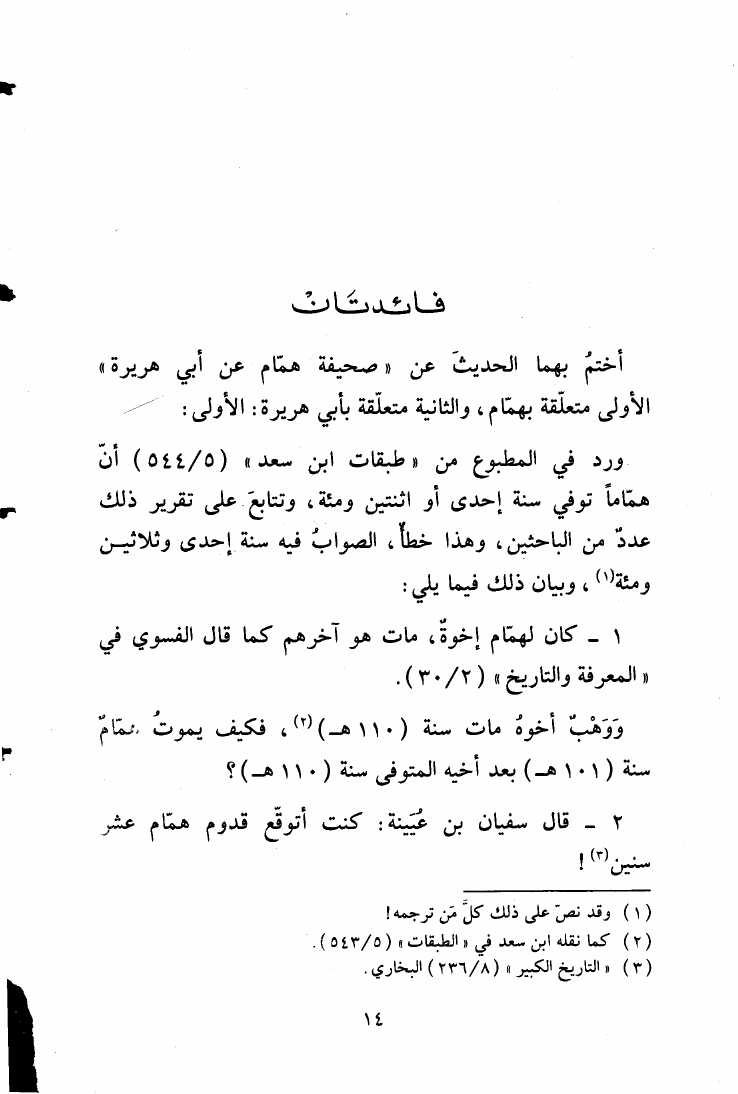 فائدتَانْ
أختمُ بهما الحديثَ عن « صحيفة همّام عن أبي هريرة »
الأولى متعلّقة بهمّام، والثانية متعلقة بأبي هريرة: الأولى:
ورد في المطبوع من « طبقات ابن سعد » (٥/٥٤٤) أنّ
همّاماً توفي سنة إحدى أو اثنتين ومئة، وتتابعَ على تقرير ذلك
عددٌ من الباحثين، وهذا خطأٌ، الصوابُ فيه سنة إحدى وثلاثيـن
ومئة(١)، وبيان ذلك فيما يلي:
١ - كان لهمّام إخوةٌ، مات هو آخرهم كما قال الفسوي في
« المعرفة والتاريخ » (٢/٣٠).
وَوَهْبٌ أخوهُ مات سنة (١١٠ هـ)(٢)، فكيف يموتُ همّامٌ
سنة (١٠١ هـ) بعد أخيه المتوفى سنة (١١٠ هـ)؟
٢ - قال سفيان بن عُيَينة: كنت أتوقّع قدوم همّام عشر
سنين(٣)!
(١) وقد نصّ على ذلك كلُّ مَن ترجمه!
(٢) كما نقله ابن سعد في « الطبقات » (٥/٥٤٣).
(٣) « التاريخ الكبير » (٨/٢٣٦) البخاري.
١٤